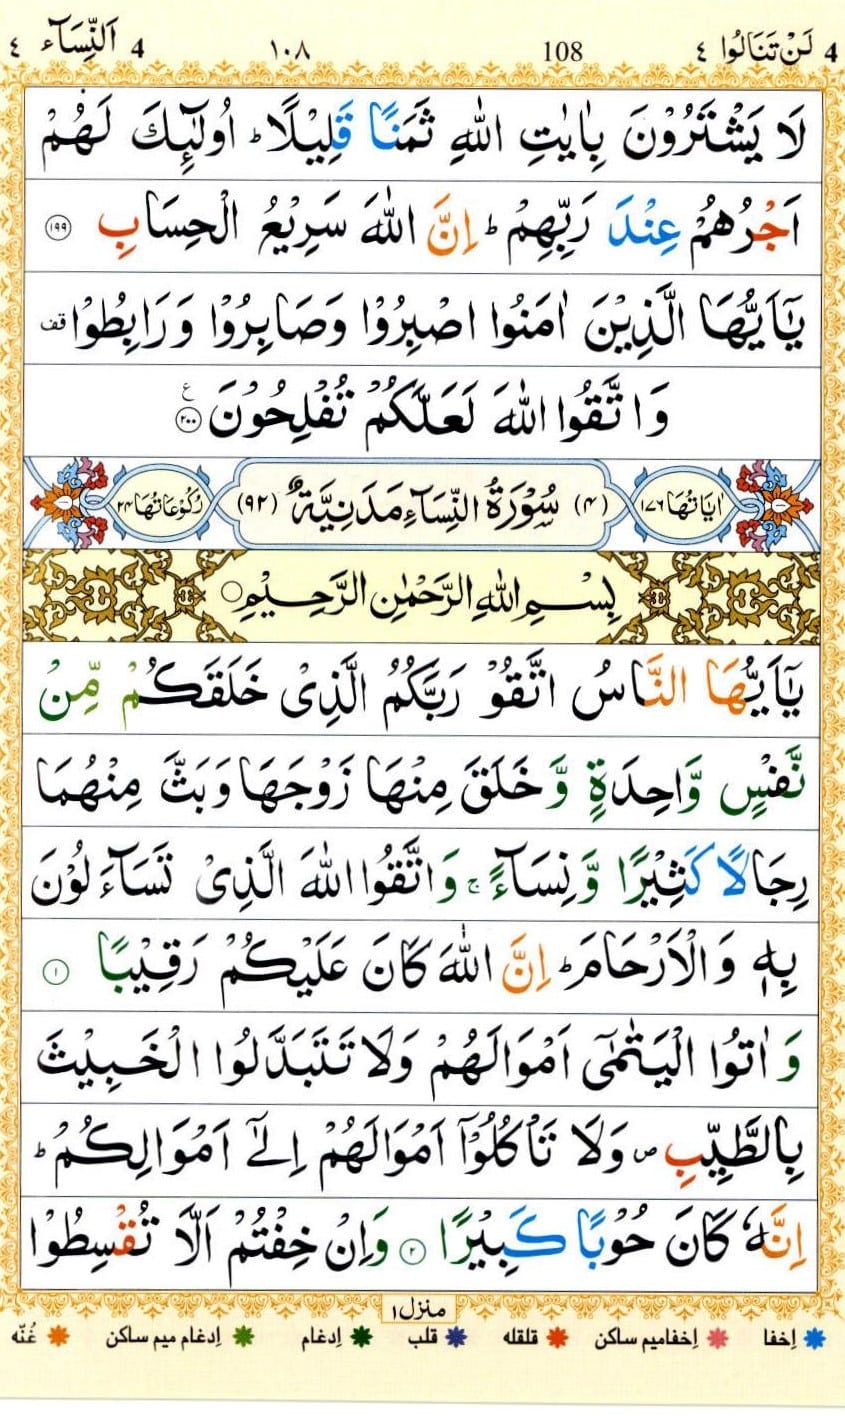 4 لَنْ تَنَالُوا ٤ 108 ١٠٨ 4 اَلنِّسَآء ٤
لَا يَشْتَرُوْنَ بِاٰيٰتِ اللّٰهِ ثَمَنًا قَلِيْلًا ؕ اُولٰٓئِكَ لَهُمْ
اَجْرُهُمْ عِنْدَ رَبِّهِمْ ؕ اِنَّ اللّٰهَ سَرِيْعُ الْحِسَابِ ۝١٩٩
يٰٓاَيُّهَا الَّذِيْنَ اٰمَنُوا اصْبِرُوْا وَصَابِرُوْا وَرَابِطُوْا قف
وَاتَّقُوا اللّٰهَ لَعَلَّكُمْ تُفْلِحُوْنَ ۝٢٠٠ ع
اٰيَاتُهَا ١٧٦ (٤) سُوْرَةُ النِّسَآءِ مَدَنِيَّةٌ (٩٢) رُكُوْعَاتُهَا ٢٤
بِسْمِ اللّٰهِ الرَّحْمٰنِ الرَّحِيْمِ ۝
يٰٓاَيُّهَا النَّاسُ اتَّقُوْ رَبَّكُمُ الَّذِىْ خَلَقَكُمْ مِّنْ
نَّفْسٍ وَّاحِدَةٍ وَّ خَلَقَ مِنْهَا زَوْجَهَا وَبَثَّ مِنْهُمَا
رِجَالًا كَثِيْرًا وَّ نِسَآءً ۚ وَ اتَّقُوا اللّٰهَ الَّذِىْ تَسَآءَلُوْنَ
بِهٖ وَالْاَرْحَامَ ؕ اِنَّ اللّٰهَ كَانَ عَلَيْكُمْ رَقِيْبًا ۝١
وَ اٰتُوا الْيَتٰمٰٓى اَمْوَالَهُمْ وَلَا تَتَبَدَّلُوا الْخَبِيْثَ
بِالطَّيِّبِ ص وَلَا تَاْكُلُوْٓا اَمْوَالَهُمْ اِلٰٓى اَمْوَالِكُمْ ؕ
اِنَّهٗ كَانَ حُوْبًا كَبِيْرًا ۝٢ وَاِنْ خِفْتُمْ اَلَّا تُقْسِطُوْا
منزل ١
اِخفا اِخفامیم ساکن قلقله قلب اِدغام اِدغام میم ساکن غُنّه